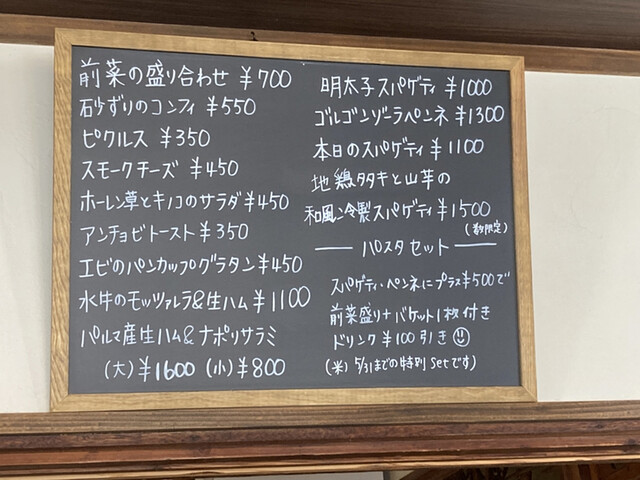 前菜の盛り合わせ ¥700
砂ずりのコンフィ ¥550
ピクルス ¥350
スモークチーズ ¥450
ホーレン草とキノコのサラダ ¥450
アンチョビトースト ¥350
エビのパンカップグラタン ¥450
水牛のモッツァレラ&生ハム ¥1100
パルマ産生ハム&ナポリサラミ
(大) ¥1600 (小) ¥800
明太子スパゲティ ¥1000
ゴルゴンゾーラペンネ ¥1300
本日のスパゲティ ¥1100
地鶏タタキと山芋の
和風冷製スパゲティ ¥1500
(数限定)
パスタセット
スパゲティ・ペンネにプラス¥500で
前菜盛り+バケット1枚付き
ドリンク ¥100引き
(米) 5/31までの特別Setです)